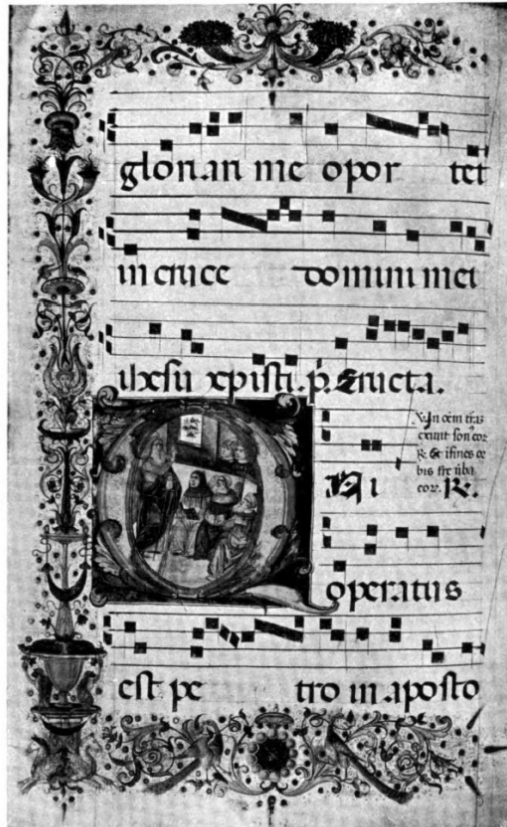 gloriari me opor tet
in cruce domini mei
ihesu xpisti. p. Eructa.
V. In oem trā
exiuit son eor
& i fines or
bis tre uba
eor. R.
Qui
operatus
est pe tro in aposto